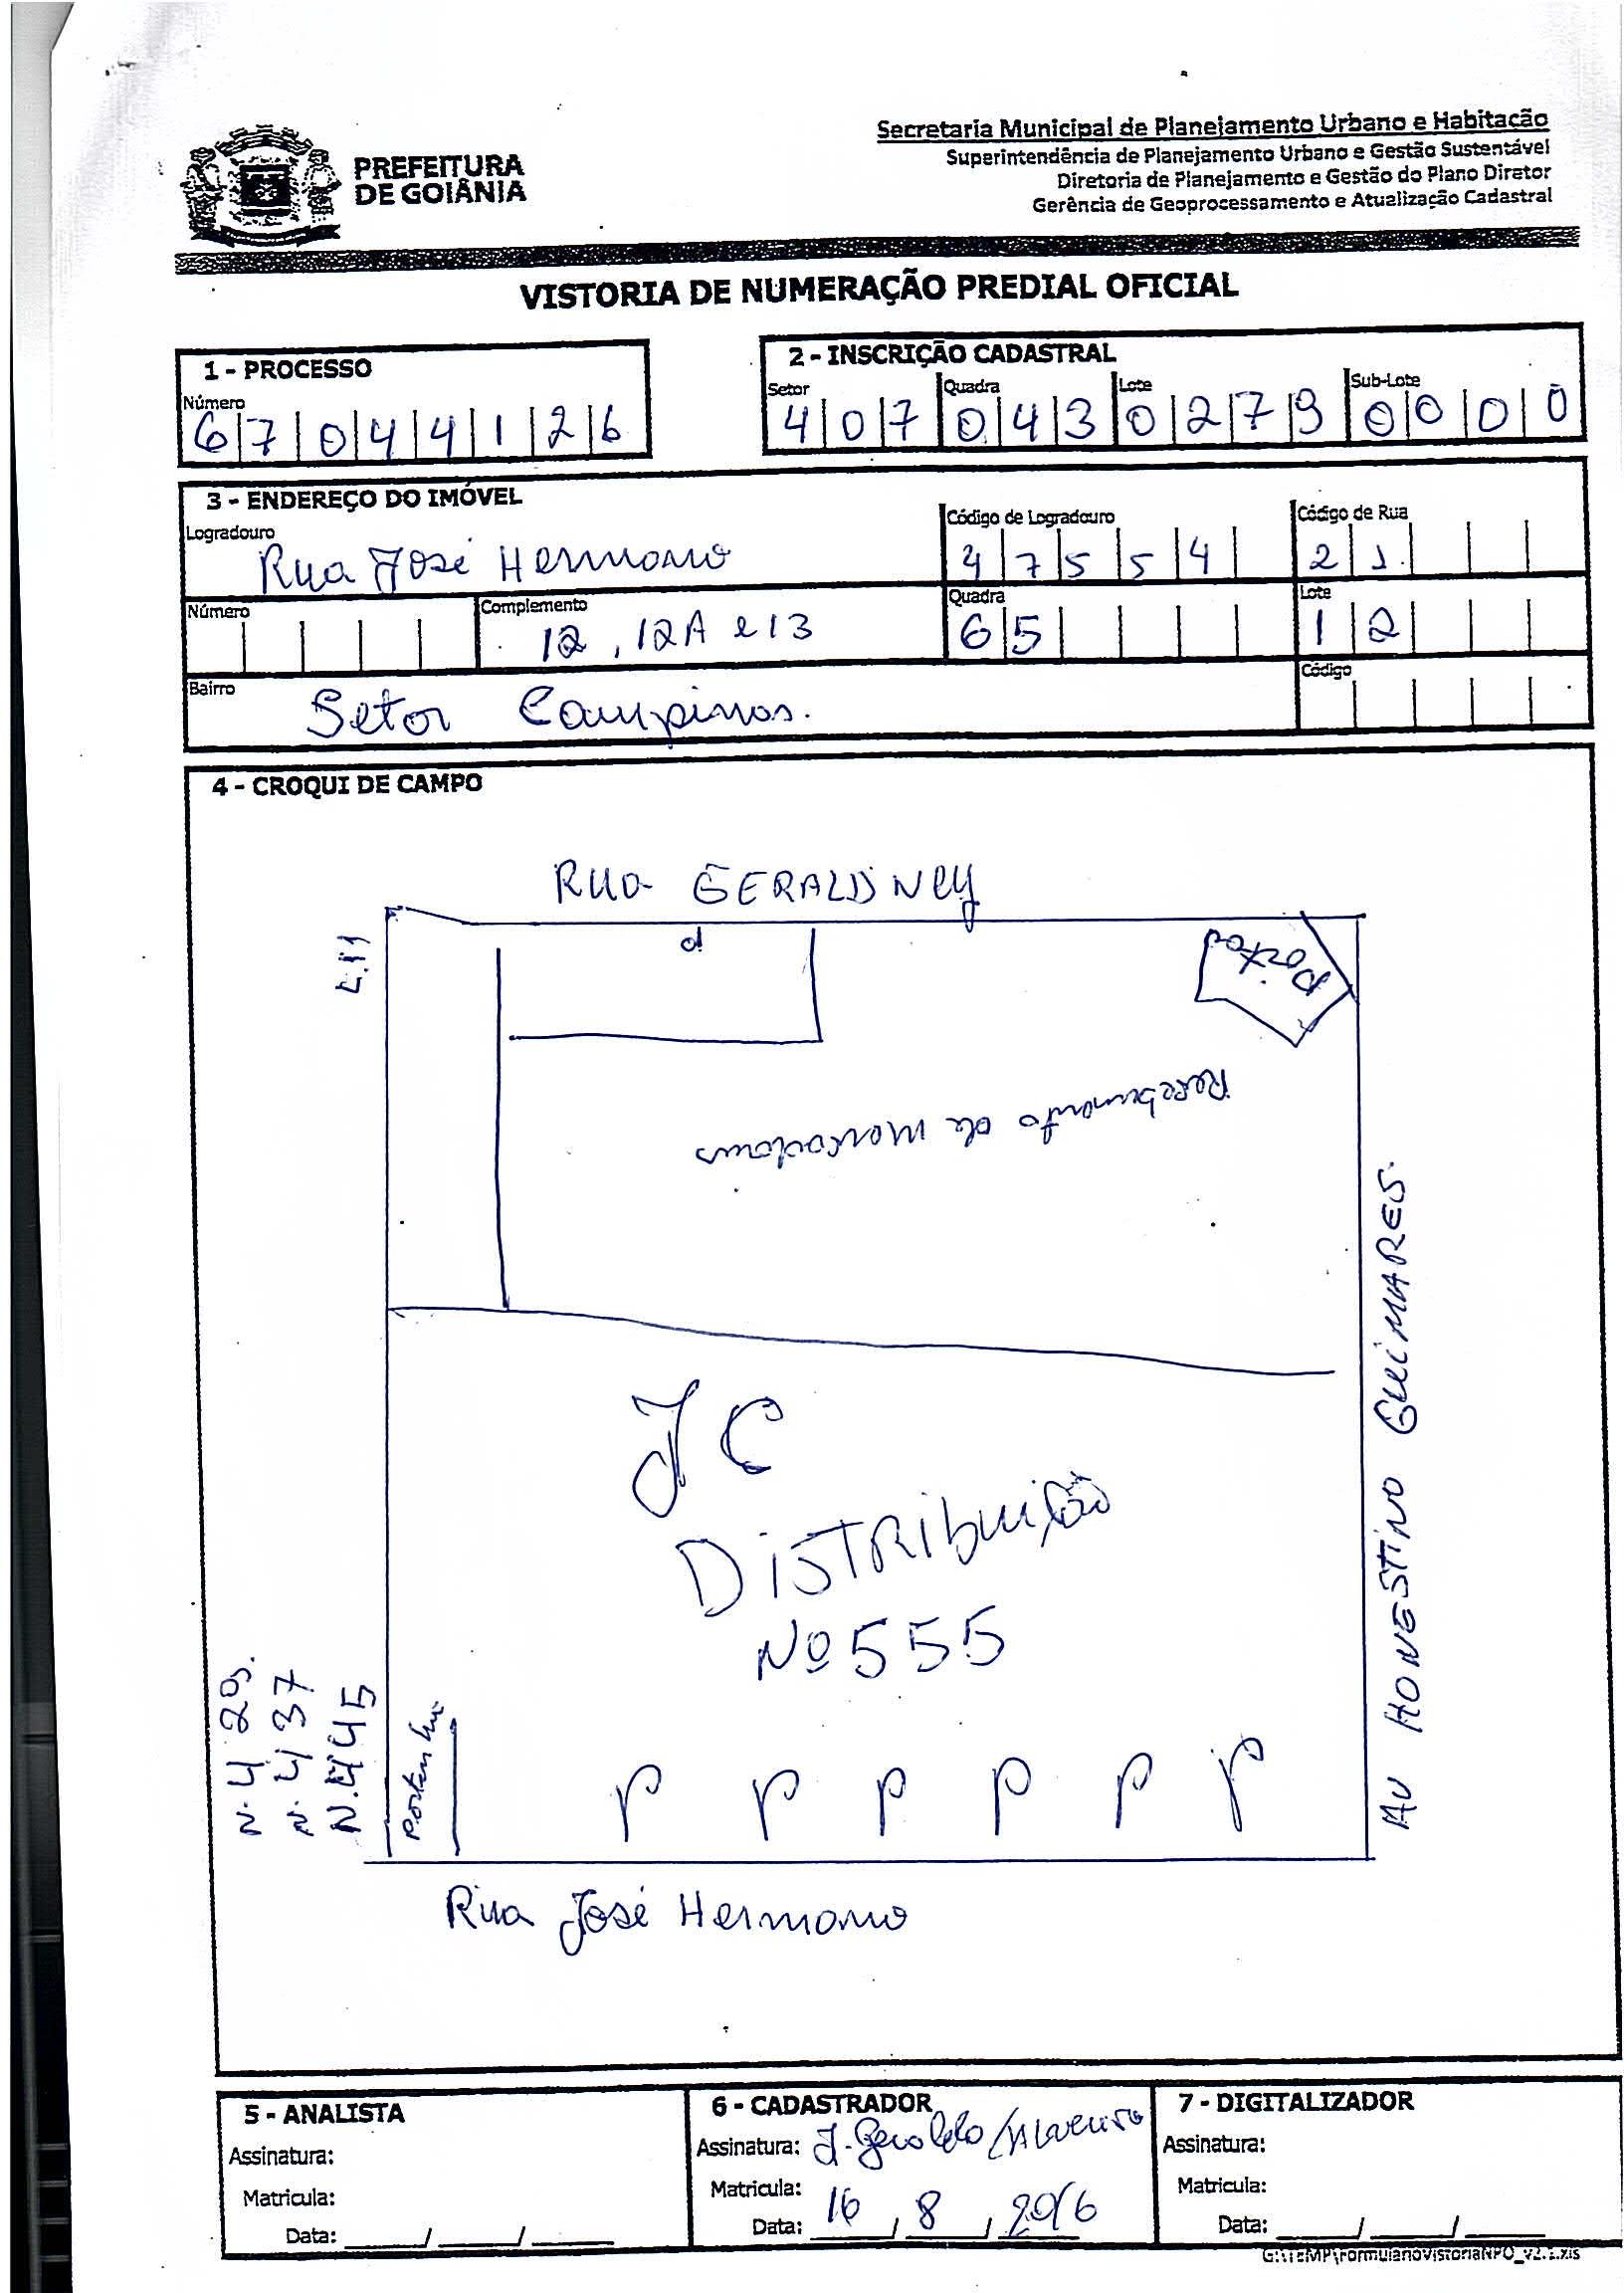 PREFEITURA
DE GOIÂNIA
Secretaria Municipal de Planejamento Urbano e Habitação
Superintendência de Planejamento Urbano e Gestão Sustentável
Diretoria de Planejamento e Gestão do Plano Diretor
Gerência de Geoprocessamento e Atualização Cadastral
VISTORIA DE NUMERAÇÃO PREDIAL OFICIAL
1 - PROCESSO
Número
6 7 0 4 4 1 2 6
2 - INSCRIÇÃO CADASTRAL
Setor Quadra Lote Sub-Lote
4 0 7 0 4 3 0 2 7 9 0 0 0 0
3 - ENDEREÇO DO IMÓVEL
Logradouro Código de Logradouro Código de Rua
Rua José Hermano 4 7 5 5 4 2 1.
Número Complemento Quadra Lote
12, 12A e 13 6 5 1 2
Bairro Código
Setor Campinas.
4 - CROQUI DE CAMPO
Rua GERALDO Ney
L.11
Portão
Recebimento de mercadorias
JC
Distribuição
Nº 555
AV HONESTINO GUIMARES.
N. 429.
N. 437
N. 445
P P P P P P
Rua José Hermano
5 - ANALISTA
Assinatura:
Matricula:
Data: ____/____/____
6 - CADASTRADOR
Assinatura: J. Geraldo
Matricula:
Data: 16/8/2016
7 - DIGITALIZADOR
Assinatura:
Matricula:
Data: ____/____/____
G:\TEMP\FormularioVistoriaNPO_v2.1.xls